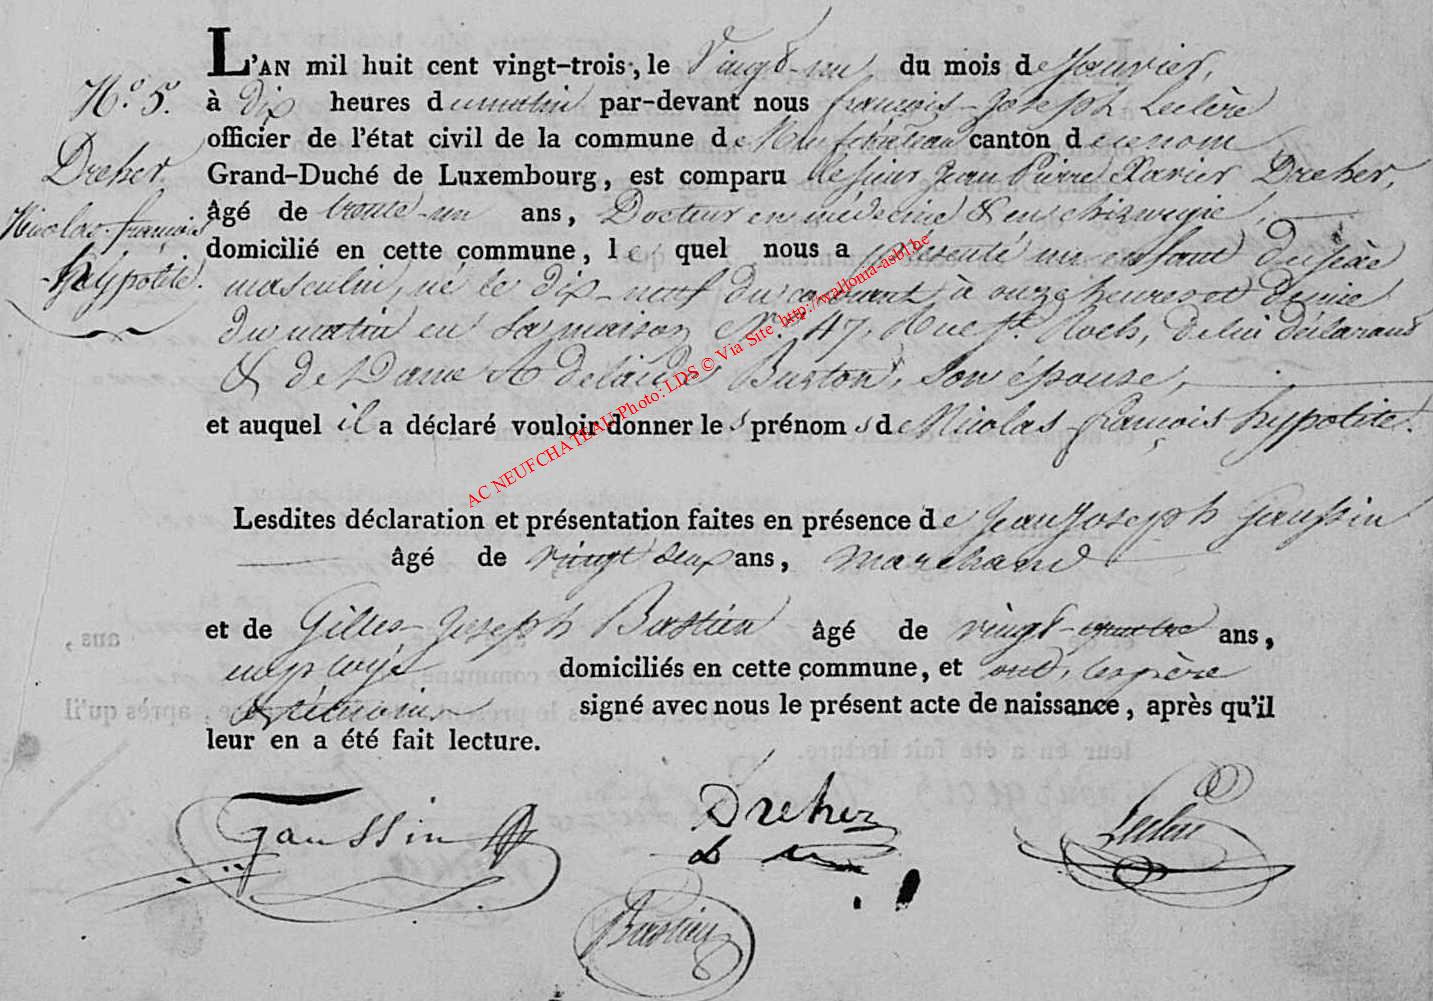 N.° 5.
Dreher
Nicolas-françois
-hypolite.
L'AN mil huit cent vingt-trois, le Vingt-un du mois de Janvier,
à dix heures du matin par-devant nous françois-Joseph Leclère
officier de l'état civil de la commune de Neufchateau canton du nom
Grand-Duché de Luxembourg, est comparu le Sieur Jean Pierre Xavier Dreher,
âgé de trente-un ans, Docteur en médecine & en chirurgie,
domicilié en cette commune, lequel nous a présenté un enfant du sèxe
masculin, né le dix-neuf du courant, à onze heures et demie
du matin en sa maison N.° 47, Rue S.t Roch, de lui déclarant
& de Dame Adelaïde Burton, son épouse,
et auquel il a déclaré vouloir donner les prénoms de Nicolas-françois hypolite.
Lesdites déclaration et présentation faites en présence de Jean Joseph Gaussin
âgé de vingt deux ans, marchand
et de Gilles-Joseph Bastien âgé de vingt-quatre ans,
employé domiciliés en cette commune, et ont, les père
& témoins signé avec nous le présent acte de naissance, après qu'il
leur en a été fait lecture.
Gaussin
Dreher
Leclère
Bastien
AC NEUFCHATEAU Photo: LDS © Via Site http://wallonia-asbl.be